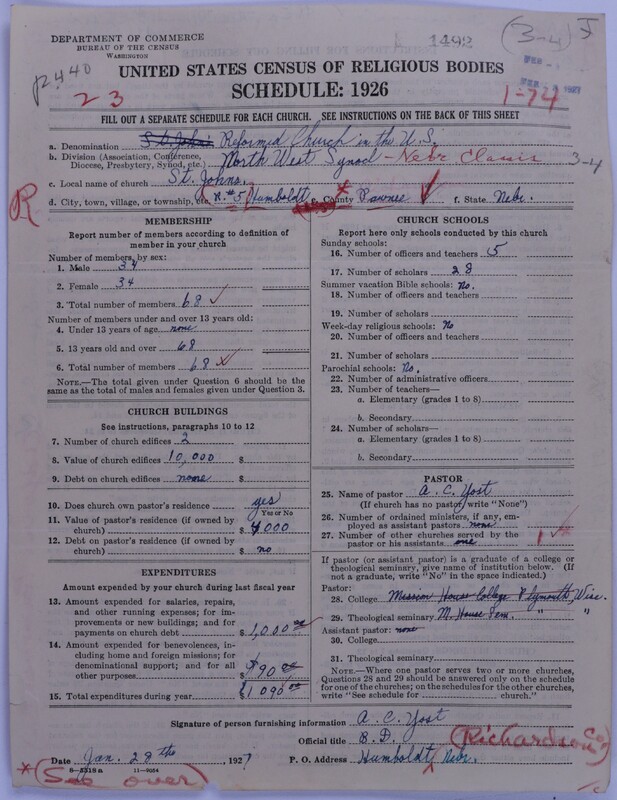 DEPARTMENT OF COMMERCE
BUREAU OF THE CENSUS
WASHINGTON
1492
(3-4)
2440
23
1-74
UNITED STATES CENSUS OF RELIGIOUS BODIES
SCHEDULE: 1926
FILL OUT A SEPARATE SCHEDULE FOR EACH CHURCH. SEE INSTRUCTIONS ON THE BACK OF THIS SHEET
a. Denomination St. John's Reformed Church in the U.S.
b. Division (Association, Conference, Diocese, Presbytery, Synod, etc.) North West Synod - Nebr Classis 3-4
c. Local name of church St. Johns.
R
d. City, town, village, or township, etc. R. #5 Humboldt, e. County Pawnee f. State Nebr.
MEMBERSHIP
Report number of members according to definition of member in your church
Number of members, by sex:
1. Male 34
2. Female 34
3. Total number of members 68
Number of members under and over 13 years old:
4. Under 13 years of age none
5. 13 years old and over 68
6. Total number of members 68
NOTE.—The total given under Question 6 should be the same as the total of males and females given under Question 3.
CHURCH BUILDINGS
See instructions, paragraphs 10 to 12
7. Number of church edifices 2
8. Value of church edifices 10,000 $
9. Debt on church edifices none $
10. Does church own pastor's residence yes
Yes or No
11. Value of pastor's residence (if owned by church) $ 4000
12. Debt on pastor's residence (if owned by church) $ no
EXPENDITURES
Amount expended by your church during last fiscal year
13. Amount expended for salaries, repairs, and other running expenses; for improvements or new buildings; and for payments on church debt $ 1,000 00
14. Amount expended for benevolences, including home and foreign missions; for denominational support; and for all other purposes $ 90 00
15. Total expenditures during year $ 1090 00
CHURCH SCHOOLS
Report here only schools conducted by this church
Sunday schools:
16. Number of officers and teachers 5
17. Number of scholars 28
Summer vacation Bible schools: no.
18. Number of officers and teachers
19. Number of scholars
Week-day religious schools: No
20. Number of officers and teachers
21. Number of scholars
Parochial schools: No.
22. Number of administrative officers
23. Number of teachers—
a. Elementary (grades 1 to 8)
b. Secondary
24. Number of scholars—
a. Elementary (grades 1 to 8)
b. Secondary
PASTOR
25. Name of pastor A. C. Yost
(If church has no pastor, write "None")
26. Number of ordained ministers, if any, employed as assistant pastors none
27. Number of other churches served by the pastor or his assistants one 1
If pastor (or assistant pastor) is a graduate of a college or theological seminary, give name of institution below. (If not a graduate, write "No" in the space indicated.)
Pastor:
28. College Mission House College Plymouth, Wisc.
29. Theological seminary M. House Sem. " "
Assistant pastor: none
30. College
31. Theological seminary
NOTE.—Where one pastor serves two or more churches, Questions 28 and 29 should be answered only on the schedule for one of the churches; on the schedules for the other churches, write "See schedule for church."
Signature of person furnishing information A. C. Yost
Official title B. D. (Richardson Co.)
Date Jan. 28th, 1927 P. O. Address Humboldt, Nebr.
8-5318a 11-9064
*(See over)